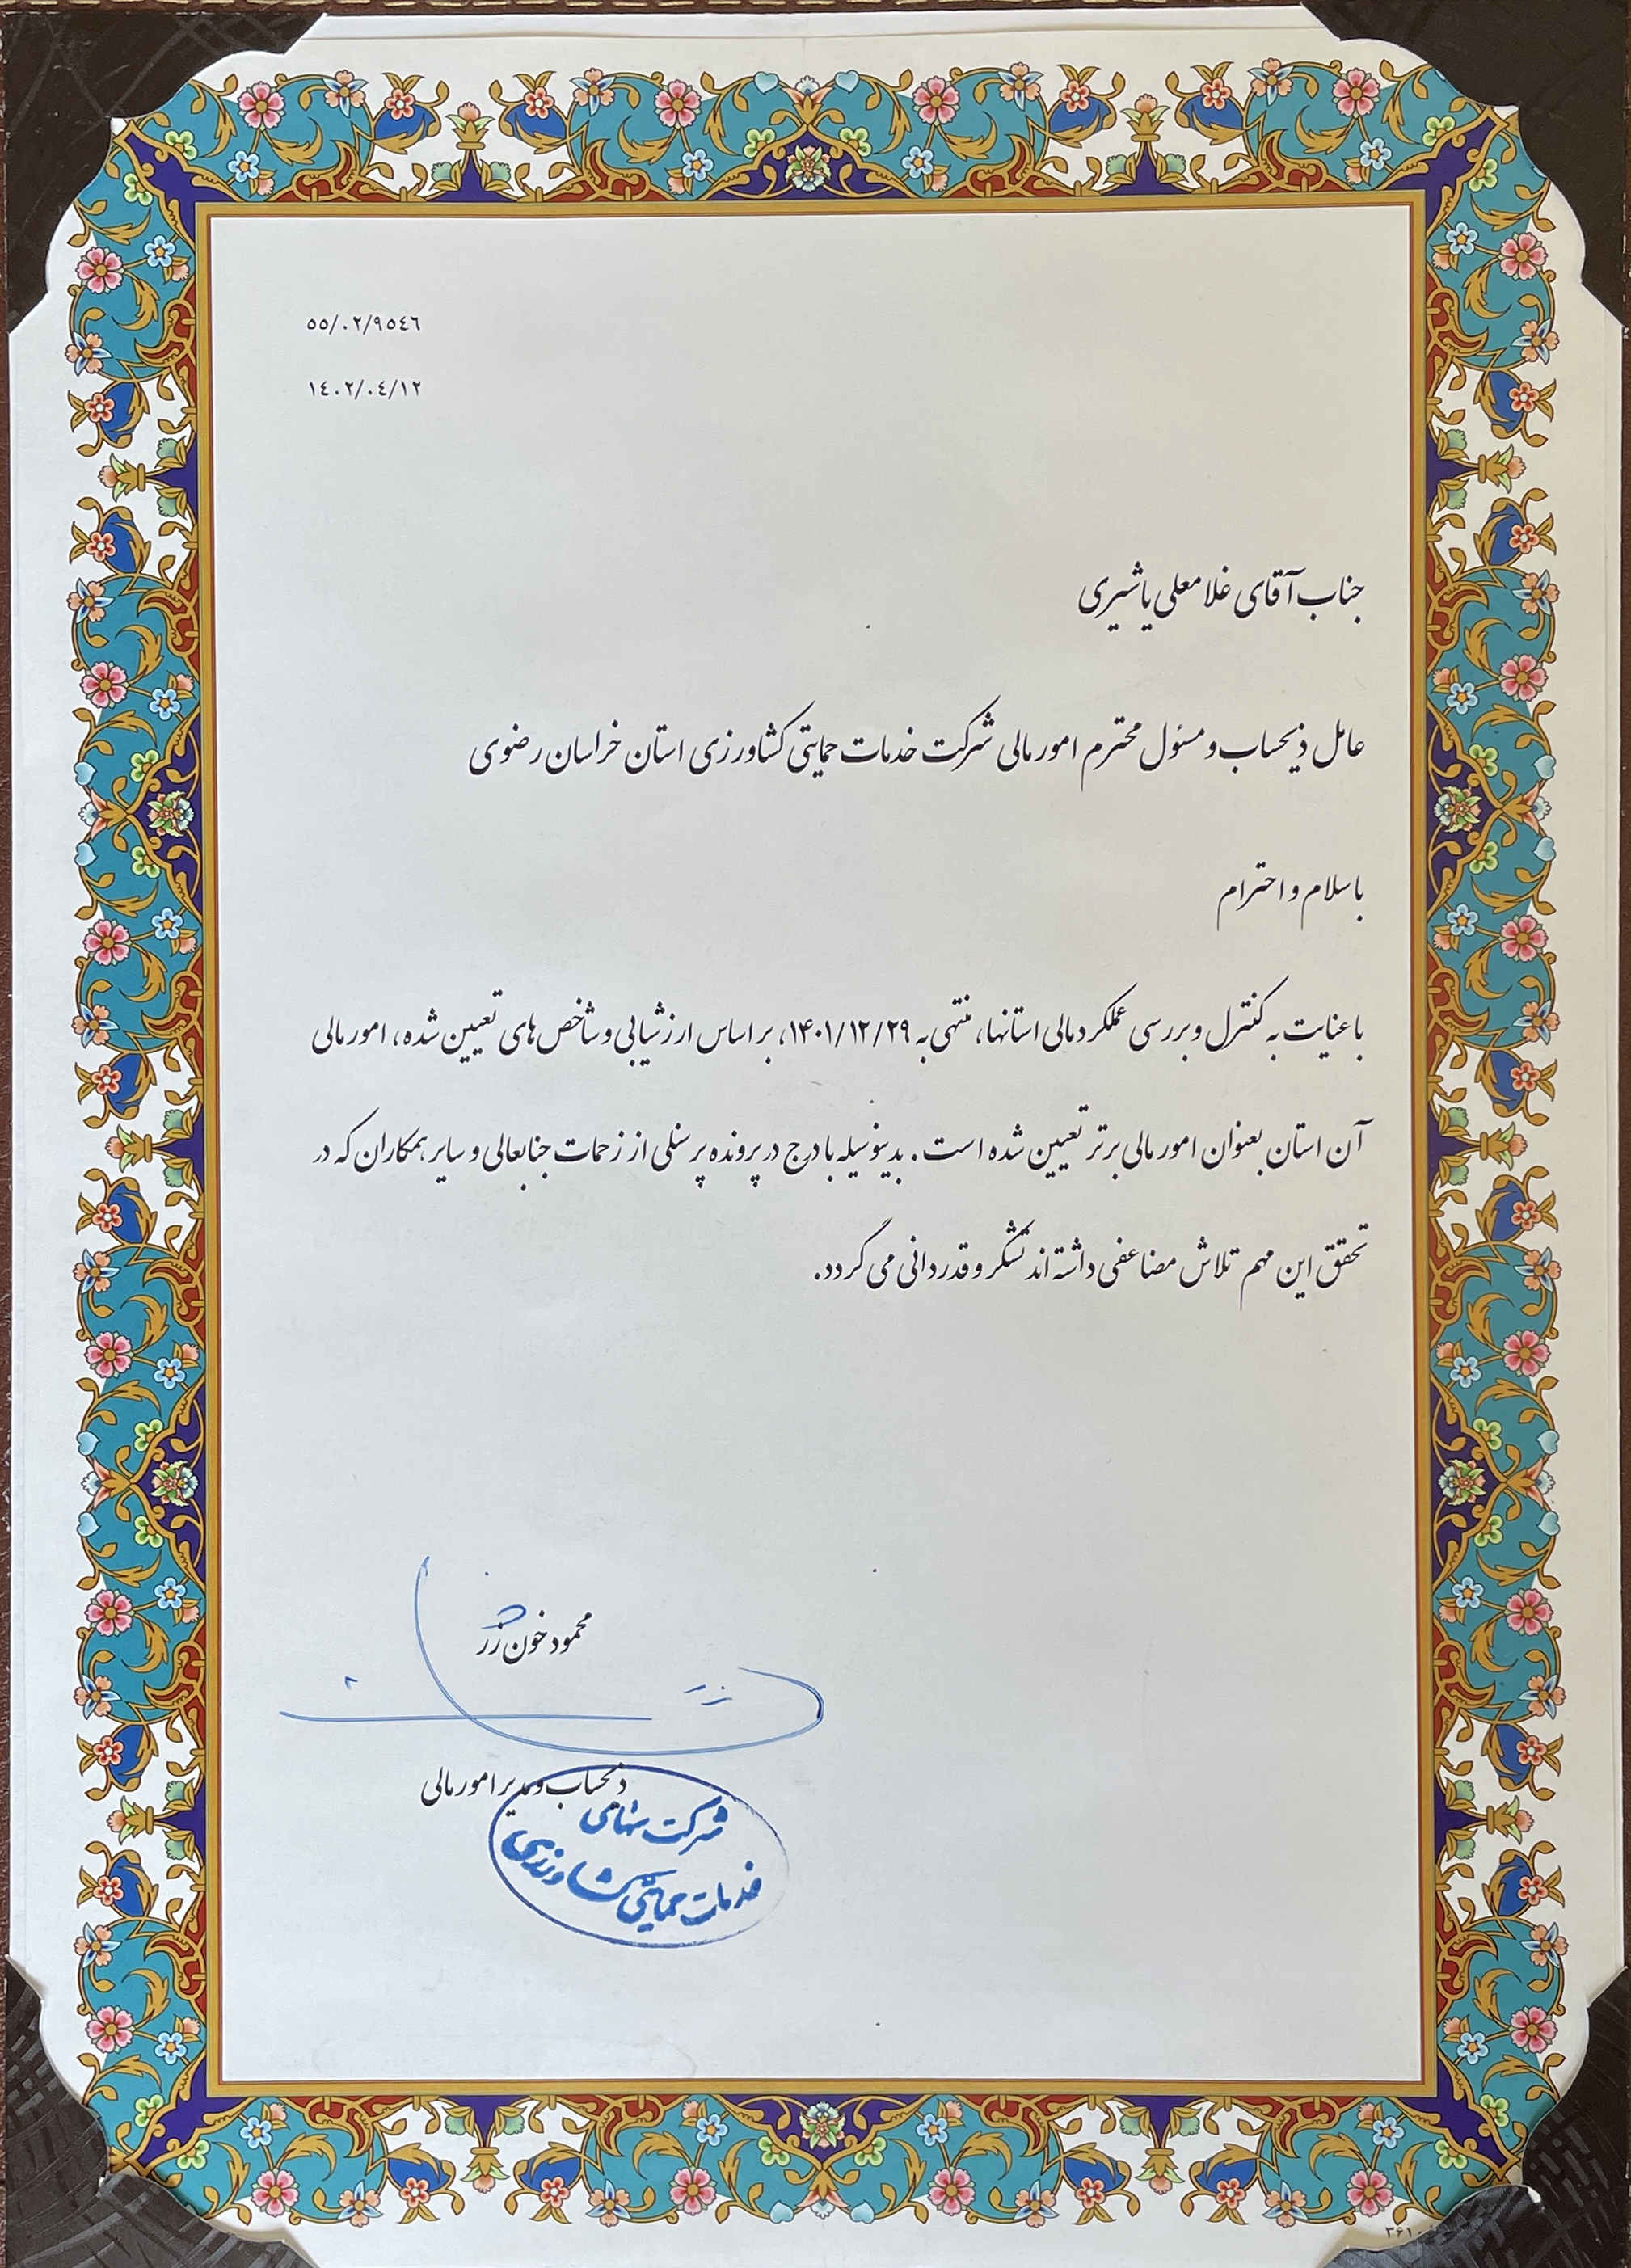 ٥٥/٠٢/٩٥٤٦
١٤٠٢/٠٤/١٢
جناب آقای غلامعلی یاشیری
عامل ذیحساب و مسئول محترم امور مالی شرکت خدمات حمایتی کشاورزی استان خراسان رضوی
با سلام و احترام
با عنایت به کنترل و بررسی عملکرد مالی استانها، منتهی به ۱۴۰۱/۱۲/۲۹، بر اساس ارزشیابی و شاخص های تعیین شده، امور مالی
آن استان بعنوان امور مالی برتر تعیین شده است. بدینوسیله با درج در پرونده پرسنلی از زحمات جنابعالی و سایر همکاران که در
تحقق این مهم تلاش مضاعفی داشته اند تشکر و قدردانی می گردد.
محمود خون
ذیحساب و مدیر امور مالی
شرکت سهامی
خدمات حمایتی کشاورزی